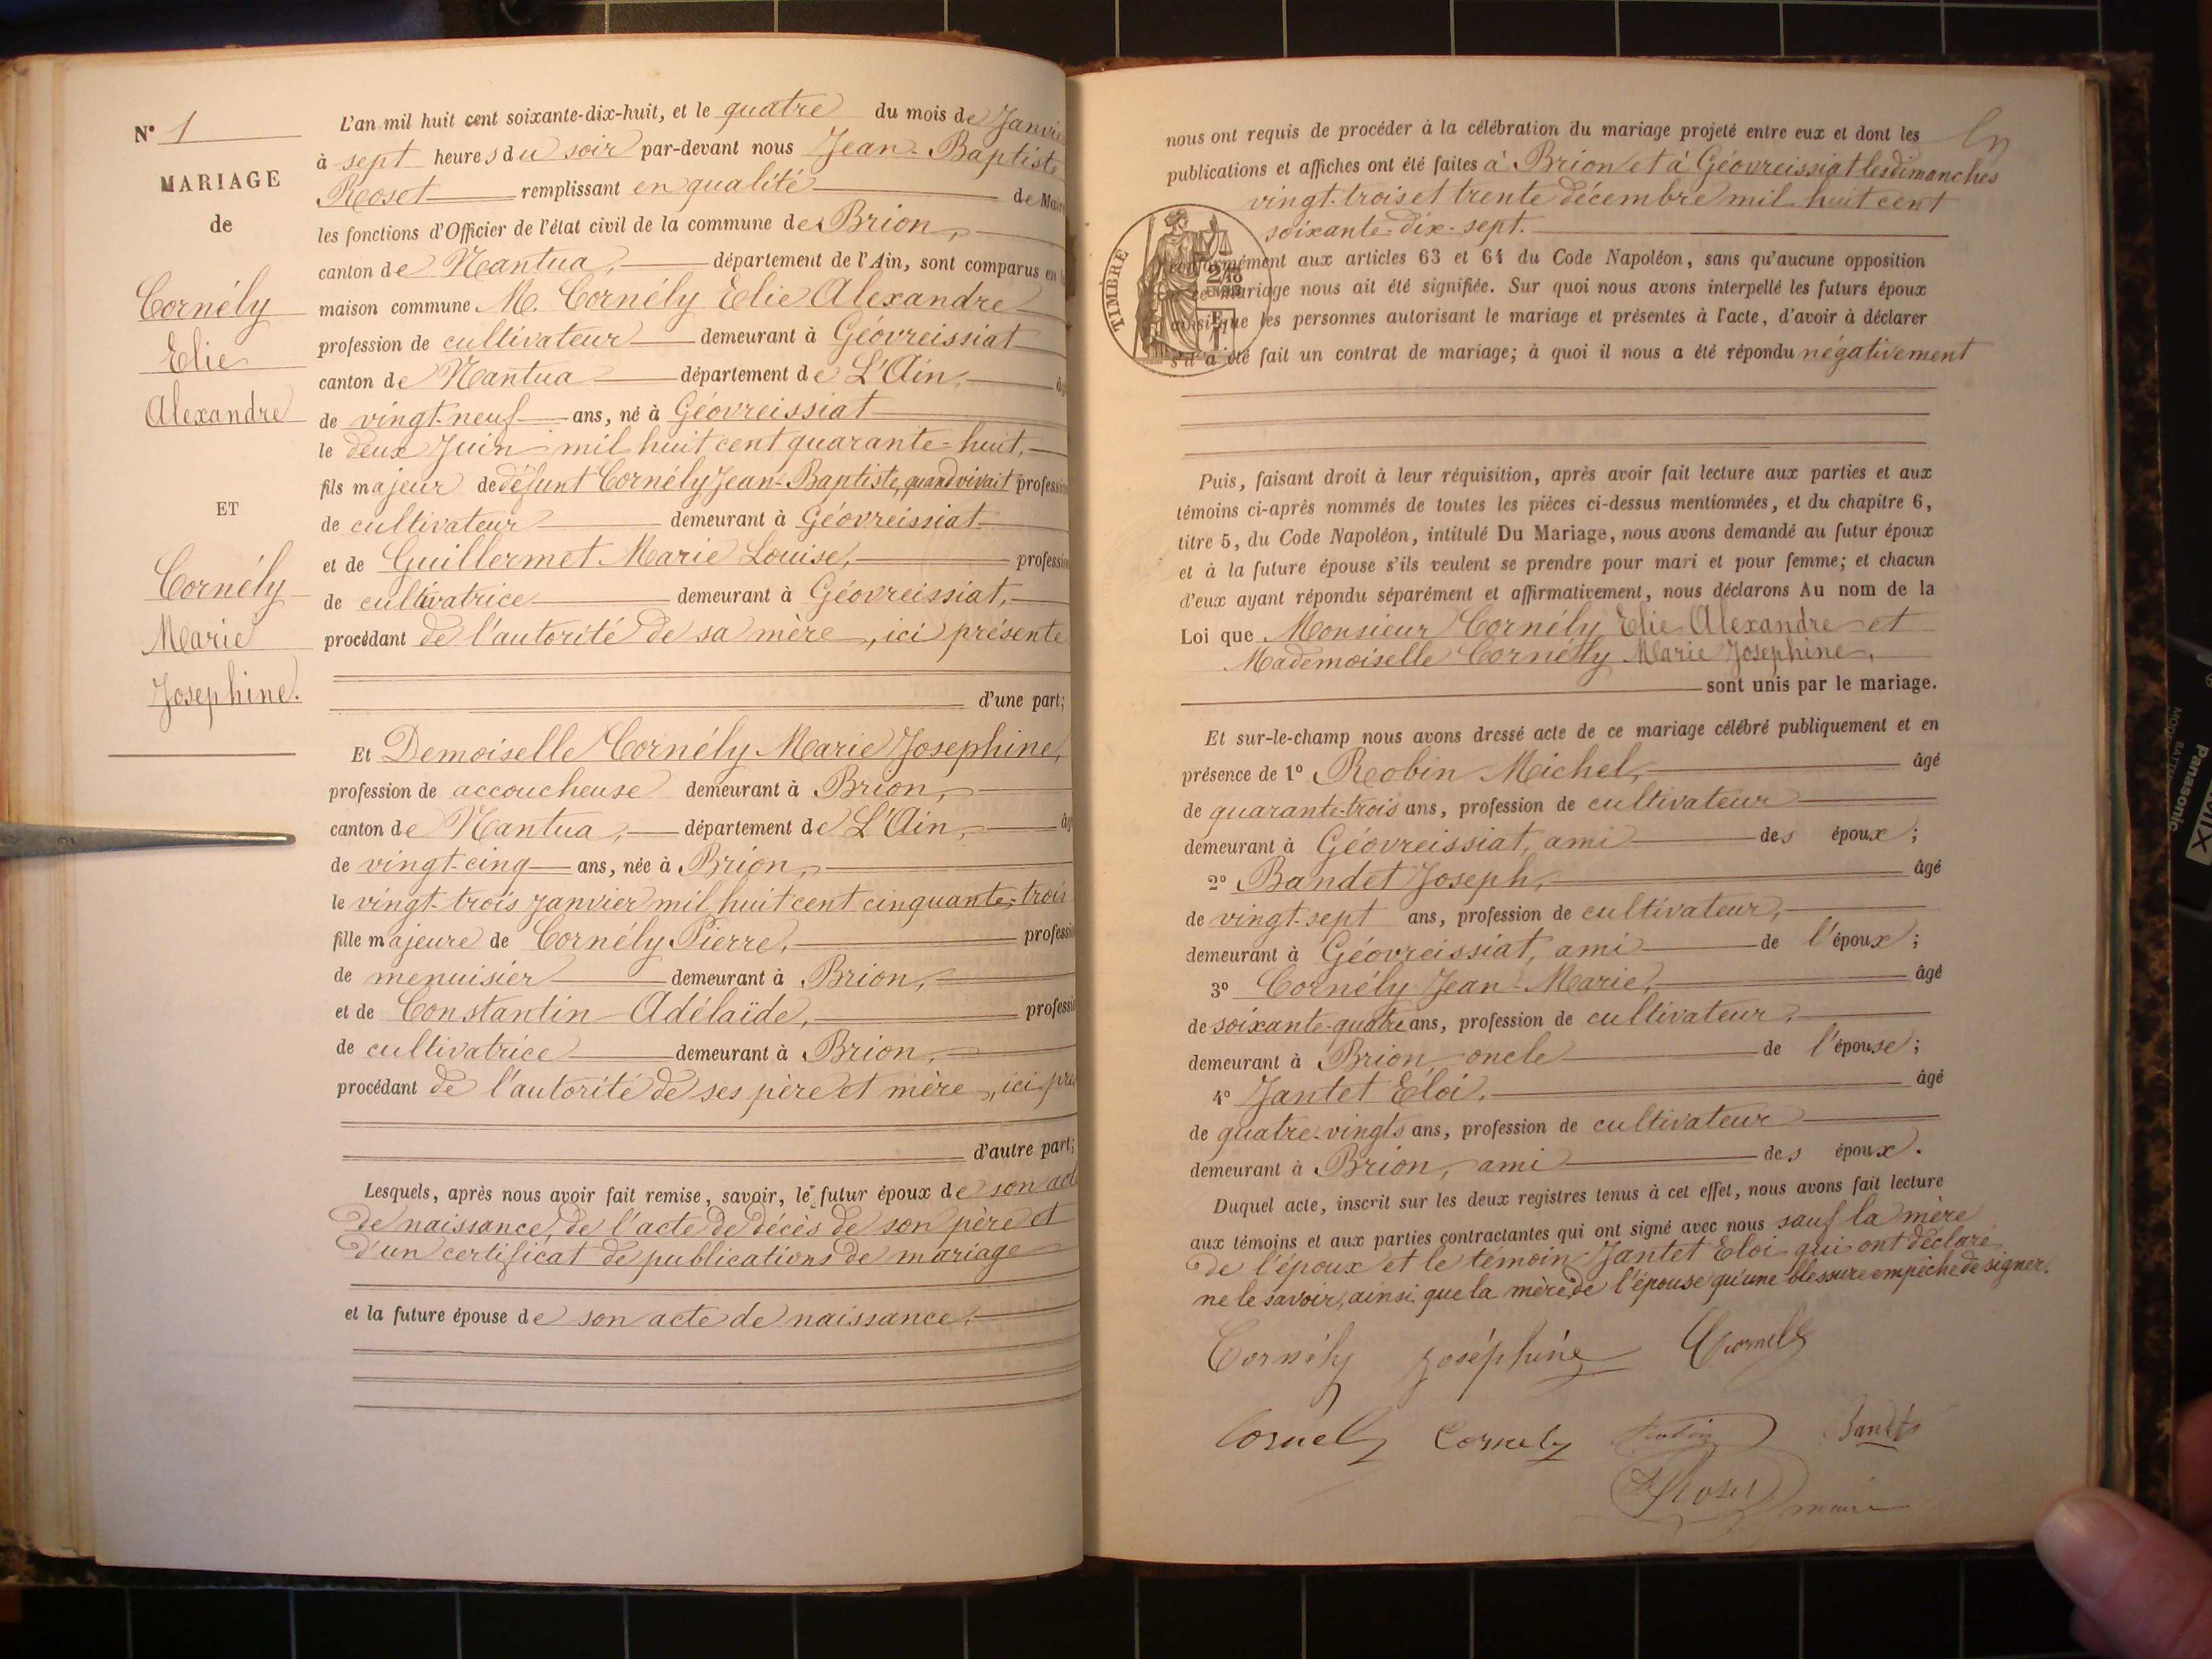 N° 1
MARIAGE
de
Cornély
Elie
Alexandre
ET
Cornély
Marie
Josephine.
L'an mil huit cent soixante-dix-huit, et le quatre du mois de Janvier
à sept heures du soir par-devant nous Jean-Baptiste
Roset remplissant en qualité de Maire
les fonctions d'Officier de l'état civil de la commune de Brion,
canton de Nantua, département de l'Ain, sont comparus en
maison commune M. Cornély Elie Alexandre
profession de cultivateur demeurant à Géovreissiat
canton de Nantua département de L'Ain,
de vingt-neuf ans, né à Géovreissiat
le deux Juin mil huit cent quarante-huit,
fils majeur de défunt Cornély Jean-Baptiste, quand vivait profession
de cultivateur demeurant à Géovreissiat
et de Guillermet Marie Louise, profession
de cultivatrice demeurant à Géovreissiat,
procédant de l'autorité de sa mère, ici présente
d'une part;
Et Demoiselle Cornély Marie Josephine,
profession de accoucheuse demeurant à Brion,
canton de Nantua, département de L'Ain,
de vingt-cinq ans, née à Brion,
le vingt-trois janvier mil huit cent cinquante-trois
fille majeure de Cornély Pierre, profession
de menuisier demeurant à Brion,
et de Constantin Adélaïde, profession
de cultivatrice demeurant à Brion,
procédant de l'autorité de ses père et mère, ici
d'autre part;
Lesquels, après nous avoir fait remise, savoir, le futur époux de son acte
de naissance, de l'acte de décès de son père et
d'un certificat de publications de mariage
et la future épouse de son acte de naissance,
nous ont requis de procéder à la célébration du mariage projeté entre eux et dont les
publications et affiches ont été faites à Brion et à Géovreissiat les dimanches
vingt-trois et trente décembre mil huit cent
soixante-dix-sept.
TIMBRE
conformément aux articles 63 et 64 du Code Napoléon, sans qu'aucune opposition
ce mariage nous ait été signifiée. Sur quoi nous avons interpellé les futurs époux
ainsi que les personnes autorisant le mariage et présentes à l'acte, d'avoir à déclarer
s'il a été fait un contrat de mariage; à quoi il nous a été répondu négativement
Puis, faisant droit à leur réquisition, après avoir fait lecture aux parties et aux
témoins ci-après nommés de toutes les pièces ci-dessus mentionnées, et du chapitre 6,
titre 5, du Code Napoléon, intitulé Du Mariage, nous avons demandé au futur époux
et à la future épouse s'ils veulent se prendre pour mari et pour femme; et chacun
d'eux ayant répondu séparément et affirmativement, nous déclarons Au nom de la
Loi que Monsieur Cornély Elie Alexandre et
Mademoiselle Cornély Marie Josephine,
sont unis par le mariage.
Et sur-le-champ nous avons dressé acte de ce mariage célébré publiquement et en
présence de 1° Robin Michel, âgé
de quarante-trois ans, profession de cultivateur
demeurant à Géovreissiat, ami des époux;
2° Bandet Joseph, âgé
de vingt-sept ans, profession de cultivateur,
demeurant à Géovreissiat, ami de l'époux;
3° Cornély Jean-Marie, âgé
de soixante-quatre ans, profession de cultivateur,
demeurant à Brion, oncle de l'épouse;
4° Jantet Eloi, âgé
de quatre-vingts ans, profession de cultivateur
demeurant à Brion, ami des époux.
Duquel acte, inscrit sur les deux registres tenus à cet effet, nous avons fait lecture
aux témoins et aux parties contractantes qui ont signé avec nous sauf la mère
de l'époux et le témoin Jantet Eloi qui ont déclaré
ne le savoir, ainsi que la mère de l'épouse qu'une blessure empêche de signer.
Cornély Joséphine Cornely
Cornely Cornely Robin Bandet
Roset maire
Panasonic